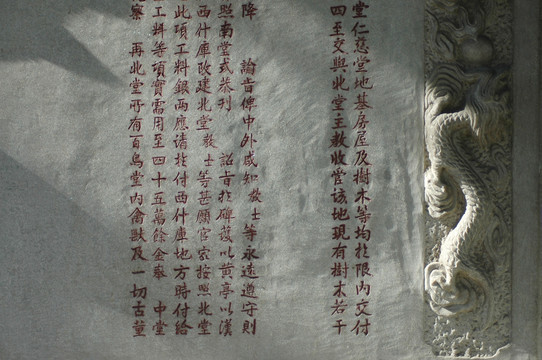 堂仁慈堂地基房屋及樹木等均於限內交付
四至交與北堂主教收管該地現有樹木若干
降 諭旨俾中外咸知教士等永遠遵守則
照南堂式恭刊 詔旨於碑護以黄亭以漢
西什庫改建北堂教士等甚願官家按照北堂
此項工料銀兩應請於付西什庫地方時付給
工料等項實需用至四十五萬餘金 中堂
察 再北堂所有百鳥堂內禽獸及一切古董